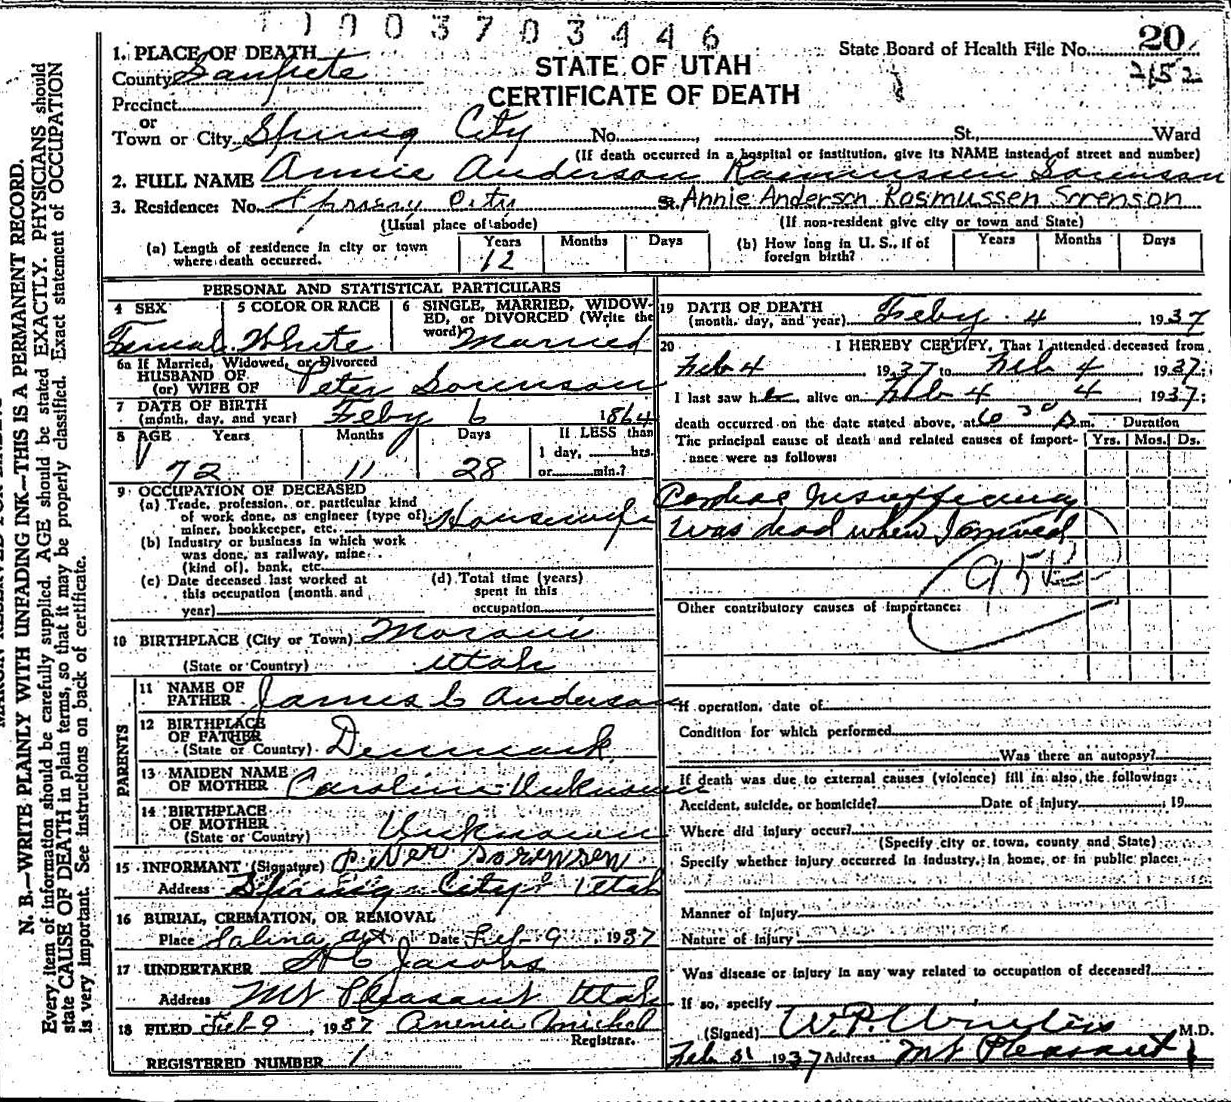 1003703446
State Board of Health File No. 20
2152
STATE OF UTAH
CERTIFICATE OF DEATH
1. PLACE OF DEATH
County Sanpete
Precinct
or
Town or City Spring City No. , St. Ward
(If death occurred in a hospital or institution, give its NAME instead of street and number)
2. FULL NAME Annie Anderson Rasmussen Sorenson
3. Residence: No. Spring City St. Annie Anderson Rasmussen Sorenson
(Usual place of abode) (If non-resident give city or town and State)
(a) Length of residence in city or town where death occurred. Years 12 Months Days (b) How long in U. S., if of foreign birth? Years Months Days
PERSONAL AND STATISTICAL PARTICULARS
4 SEX Female 5 COLOR OR RACE White 6 SINGLE, MARRIED, WIDOW-
ED, or DIVORCED (Write the
word) Married
6a If Married, Widowed, or Divorced
HUSBAND OF
(or) WIFE OF Peter Sorenson
7 DATE OF BIRTH
(month, day, and year) Feby 6 1864
8 AGE Years 72 Months 11 Days 28 If LESS than
1 day, hrs.
or min.?
9 OCCUPATION OF DECEASED
(a) Trade, profession, or particular kind
of work done, as engineer (type of)
miner, bookkeeper, etc. Housewife
(b) Industry or business in which work
was done, as railway, mine
(kind of), bank, etc.
(c) Date deceased last worked at
this occupation (month and
year)
(d) Total time (years)
spent in this
occupation
10 BIRTHPLACE (City or Town) Moroni
(State or Country) Utah
PARENTS
11 NAME OF
FATHER James C Anderson
12 BIRTHPLACE
OF FATHER
(State or Country) Denmark
13 MAIDEN NAME
OF MOTHER Caroline Unknown
14 BIRTHPLACE
OF MOTHER
(State or Country) Unknown
15 INFORMANT (Signature) Peter Sorensen
Address Spring City Utah
16 BURIAL, CREMATION, OR REMOVAL
Place Salina Date Feb-9 1937
17 UNDERTAKER A C Jacobs
Address Mt Pleasant Utah
18 FILED Feb-9, 1937
Registrar.
REGISTERED NUMBER 1
19 DATE OF DEATH
(month, day, and year) Feby 4, 1937
20 I HEREBY CERTIFY, That I attended deceased from
Feb 4 1937 to Feb 4 1937;
I last saw her alive on Feb 4 4 1937;
death occurred on the date stated above, at 6 30 p.m. Duration
The principal cause of death and related causes of import- Yrs. Mos. Ds.
ance were as follows:
Cardiac Insufficiency
Was dead when I arrived
95B
Other contributory causes of importance:
If operation, date of
Condition for which performed
Was there an autopsy?
If death was due to external causes (violence) fill in also the following:
Accident, suicide, or homicide? Date of injury , 19
Where did injury occur?
(Specify city or town, county and State)
Specify whether injury occurred in industry, in home, or in public place:
Manner of injury
Nature of injury
Was disease or injury in any way related to occupation of deceased?
If so, specify
(Signed) M.D.
Feb 1937 Address Mt Pleasant
N. B.—WRITE PLAINLY WITH UNFADING INK—THIS IS A PERMANENT RECORD.
Every item of information should be carefully supplied. AGE should be stated EXACTLY. PHYSICIANS should
state CAUSE OF DEATH in plain terms, so that it may be properly classified. Exact statement of OCCUPATION
is very important. See instructions on back of certificate.